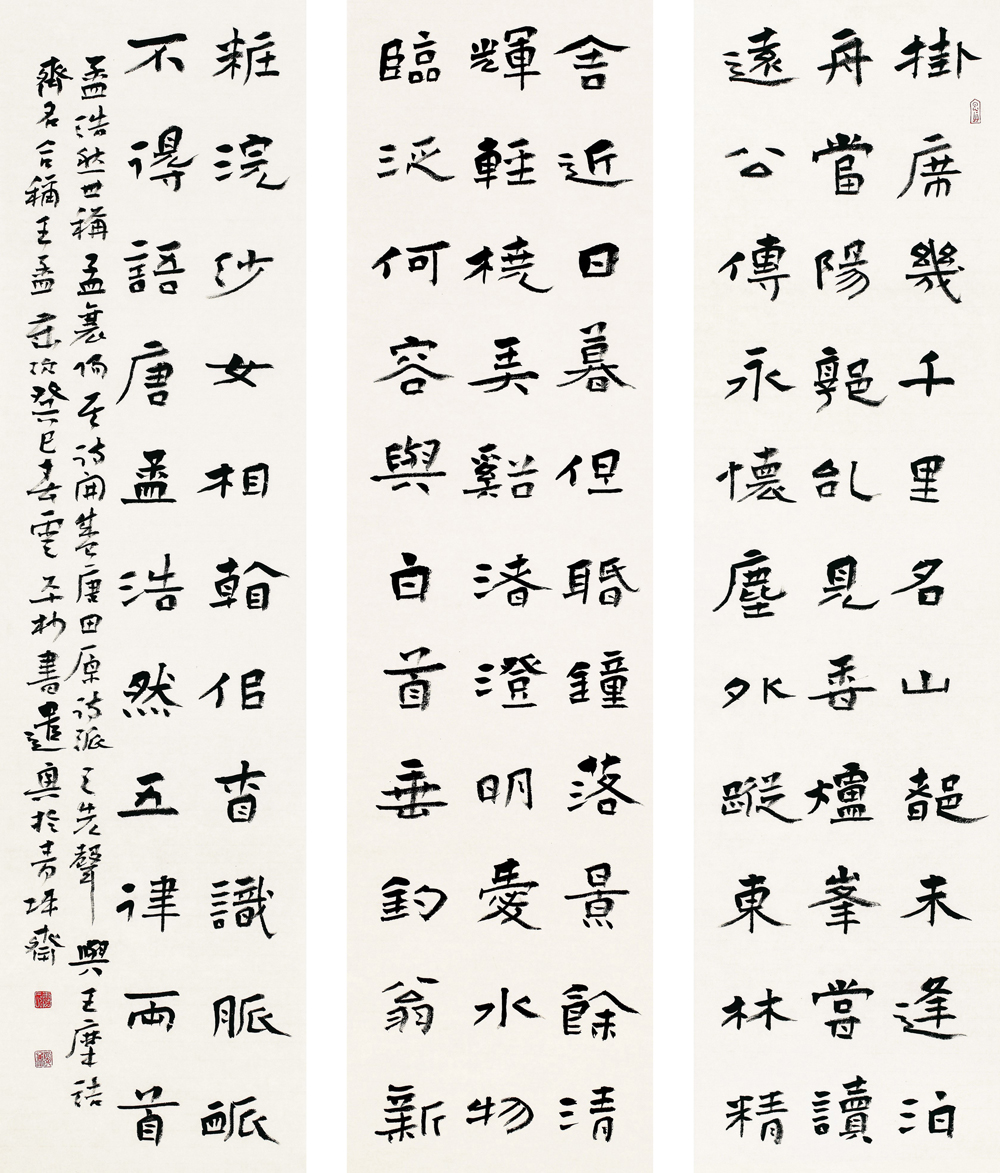 掛席幾千里名山都未逢泊
舟當陽郭乨見香爐峯嘗讀
遠公傳永懷塵外蹤東林精
舍近日暮但䎽鐘落景餘清
輝輕橈弄谿渚澄明愛水物
臨泛何容與白首垂釣翁新
粧浣沙女相看佀識脈脈
不得語唐孟浩然五律兩首
孟浩然世稱孟襄陽其詩開盛唐田原詩派之先聲與王摩詰
齊名合稱王孟歲次癸巳春雲平抄書遣興於青坪齋